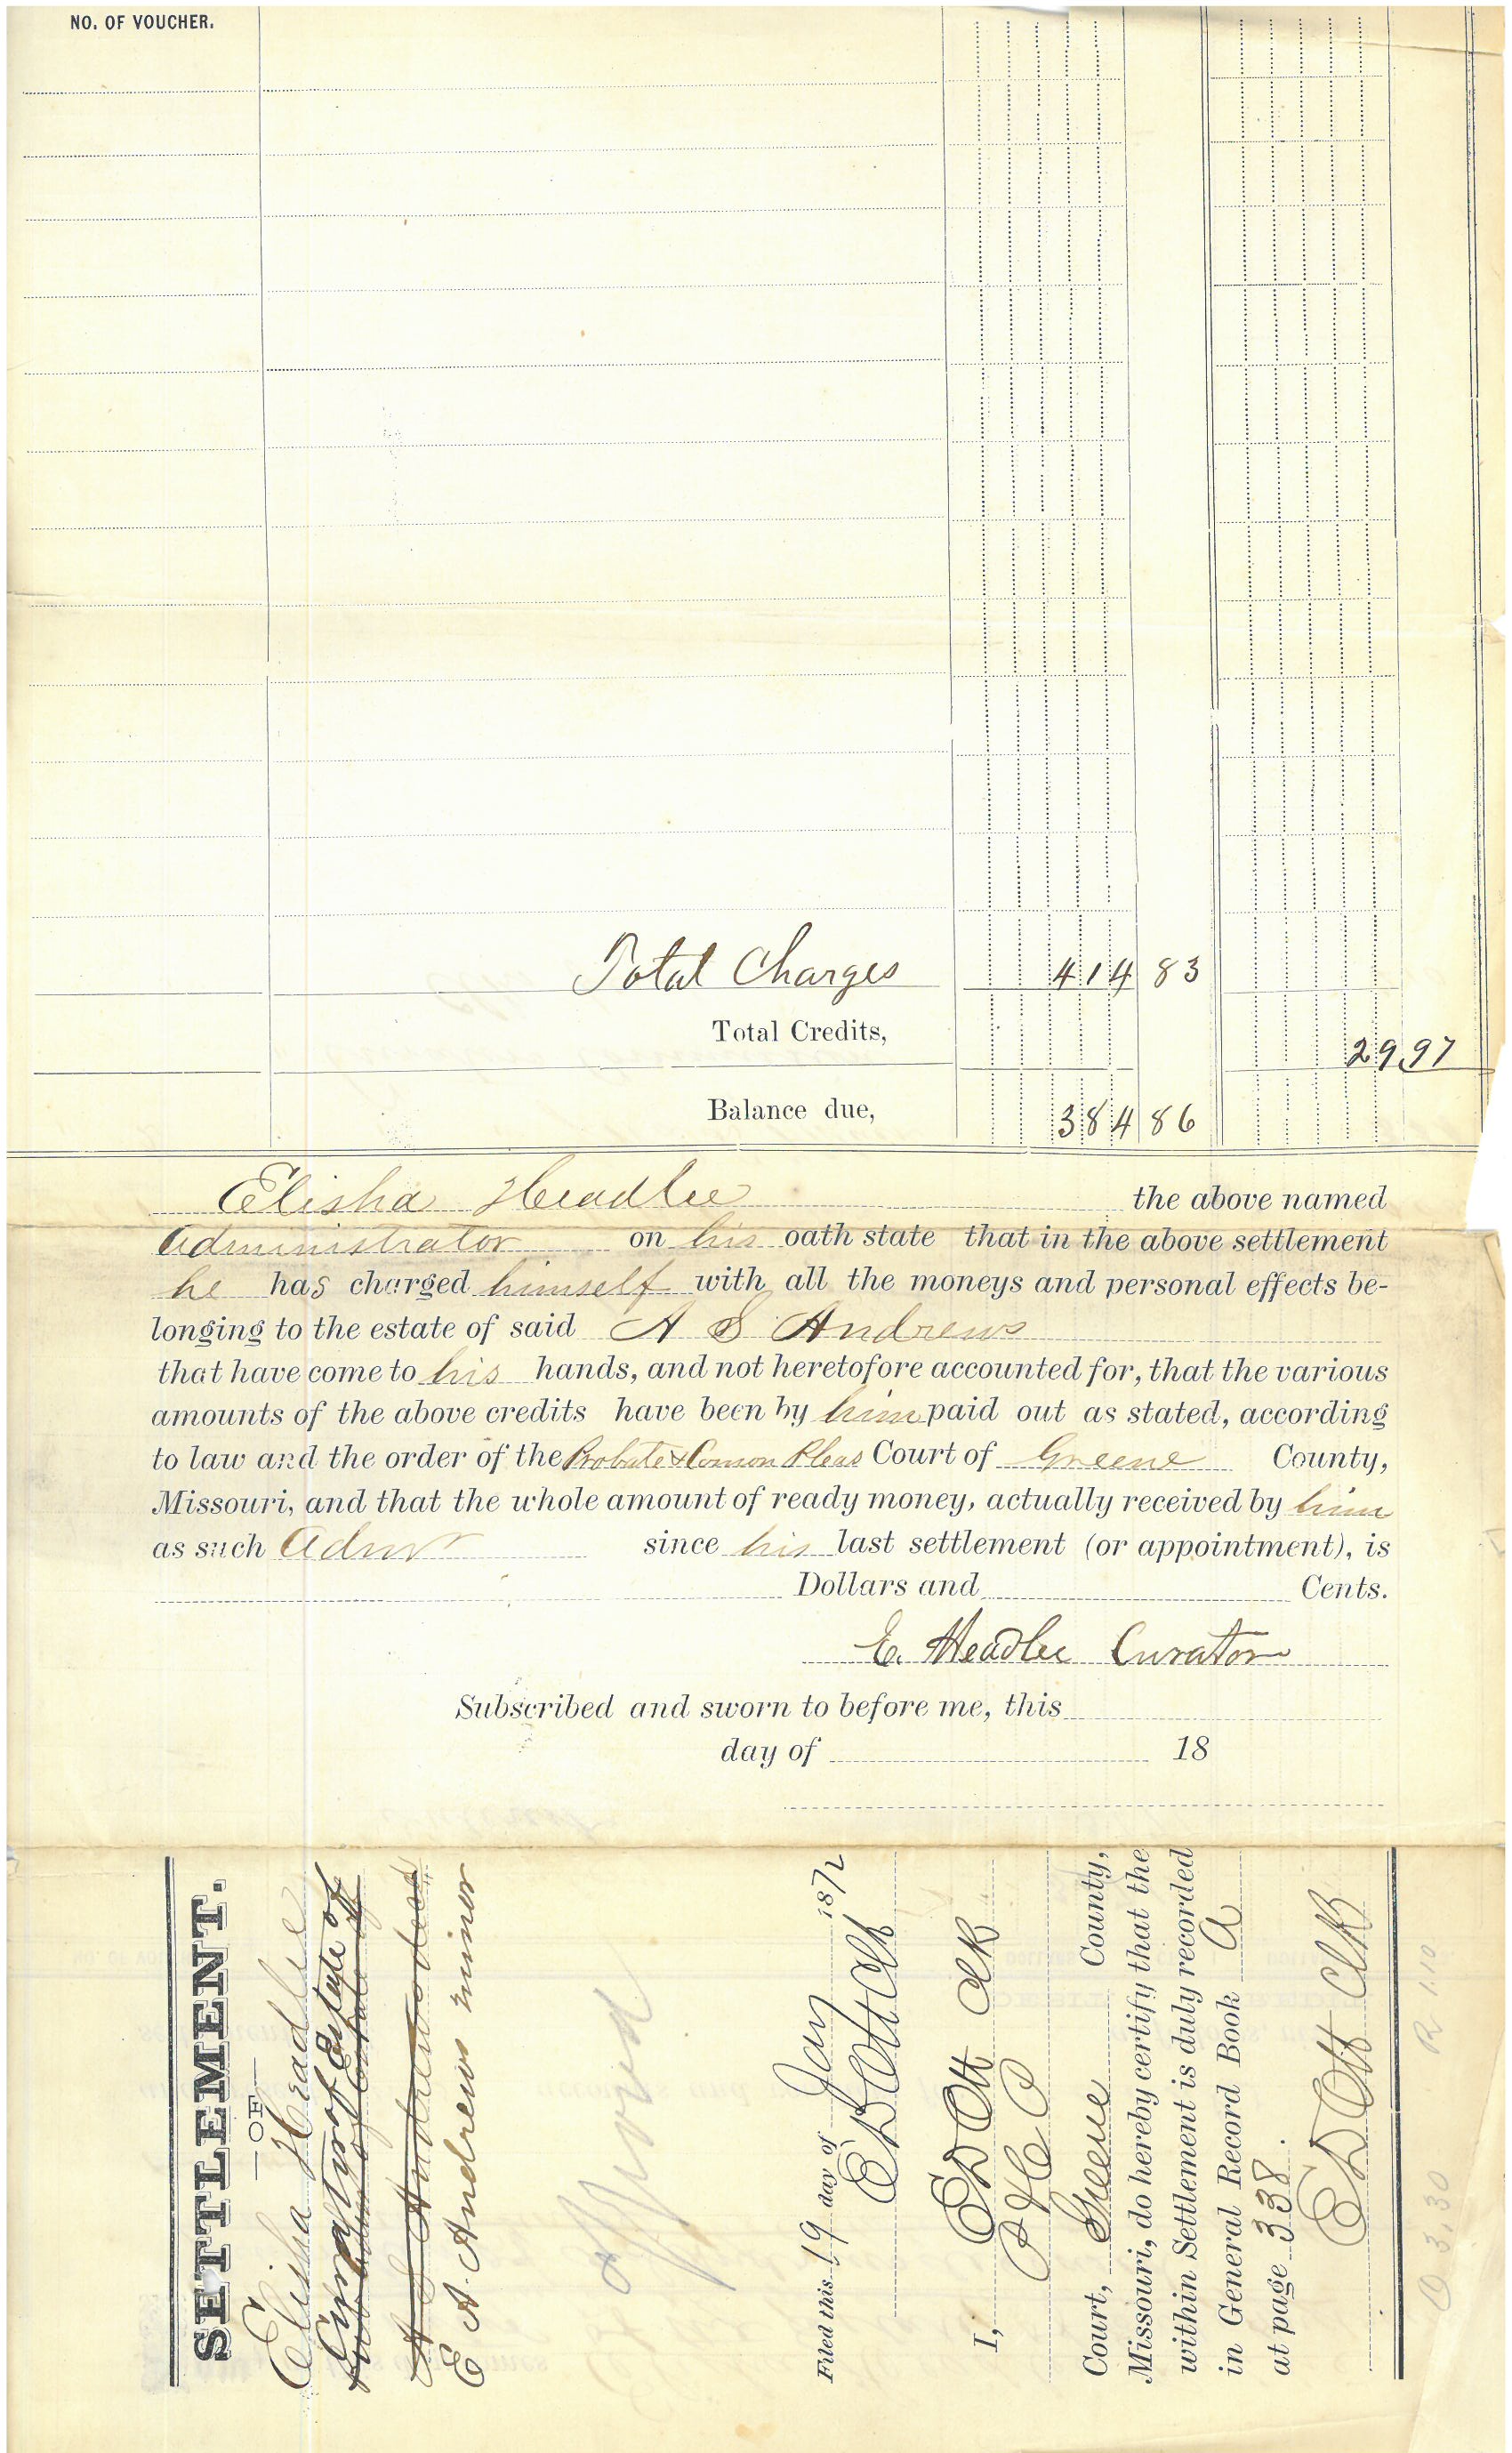 NO. OF VOUCHER.
Total Charges 414 83
Total Credits, 29 97
Balance due, 384 86
Elisha Headlee the above named
administrator on his oath state that in the above settlement
he has charged himself with all the moneys and personal effects be-
longing to the estate of said A S Andrews
that have come to his hands, and not heretofore accounted for, that the various
amounts of the above credits have been by him paid out as stated, according
to law and the order of the Probate & Comon Pleas Court of Greene County,
Missouri, and that the whole amount of ready money, actually received by him
as such Admr since his last settlement (or appointment), is
Dollars and Cents.
E. Headlee Curator
Subscribed and sworn to before me, this
day of 18
SETTLEMENT.
—OF—
Elisha Headlee
Curator of Estate of
A S Andrews decd
E A. Andrews minor
approved
Filed this 19 day of Jan 1872
E D Ott Clk
I, E D Ott Clk
P & C P
Court, Greene County,
Missouri, do hereby certify that the
within Settlement is duly recorded
in General Record Book A
at page 338.
E D Ott Clk
3.30 R 1.10